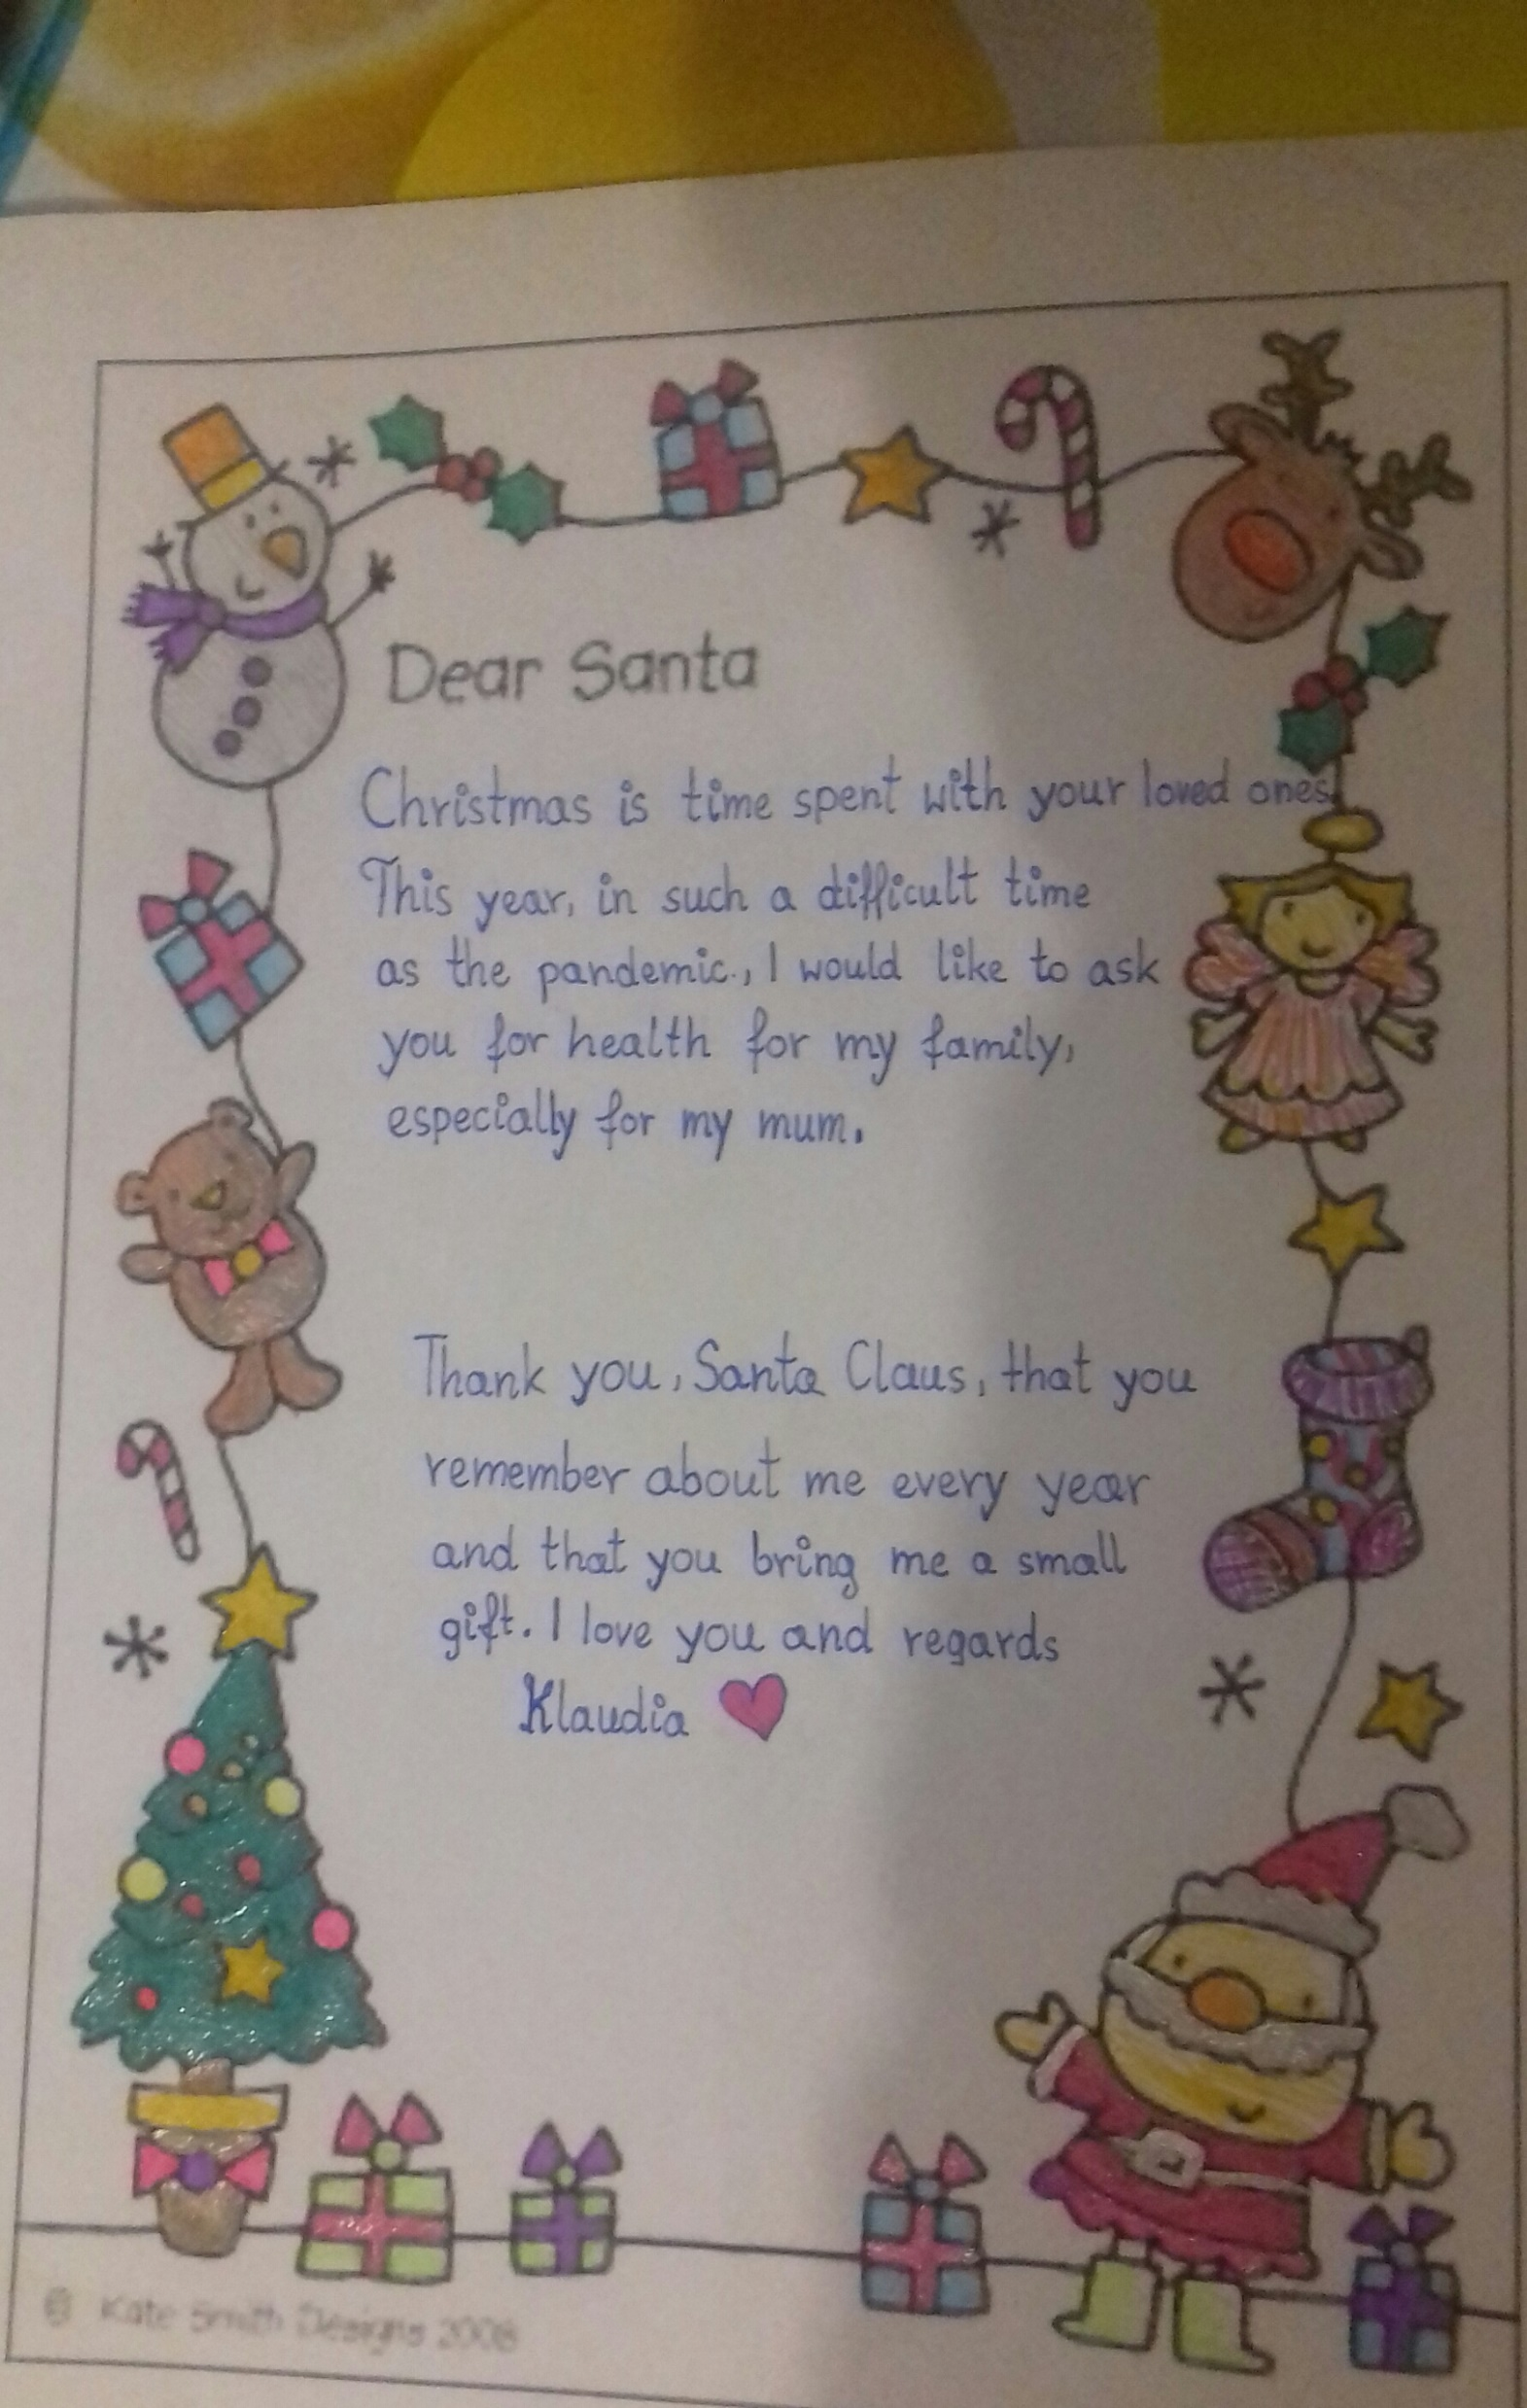 Dear Santa
Christmas is time spent with your loved ones.
This year, in such a difficult time
as the pandemic., I would like to ask
you for health for my family,
especially for my mum.
Thank you, Santa Claus, that you
remember about me every year
and that you bring me a small
gift. I love you and regards
Klaudia
© Kate Smith Designs 2008